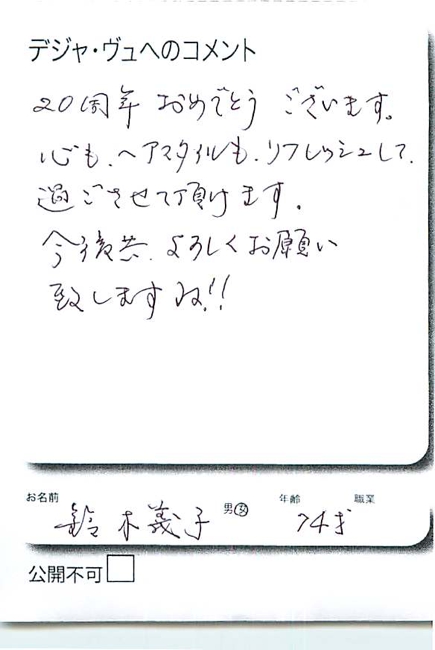 デジャ・ヴュへのコメント
20周年 おめでとう ございます。
心も、ヘアスタイルも、リフレッシュして、
過ごさせて頂けます。
今後共、よろしくお願い
致しますね!!
お名前 男・女 年齢 職業
鈴木義子 74才
公開不可